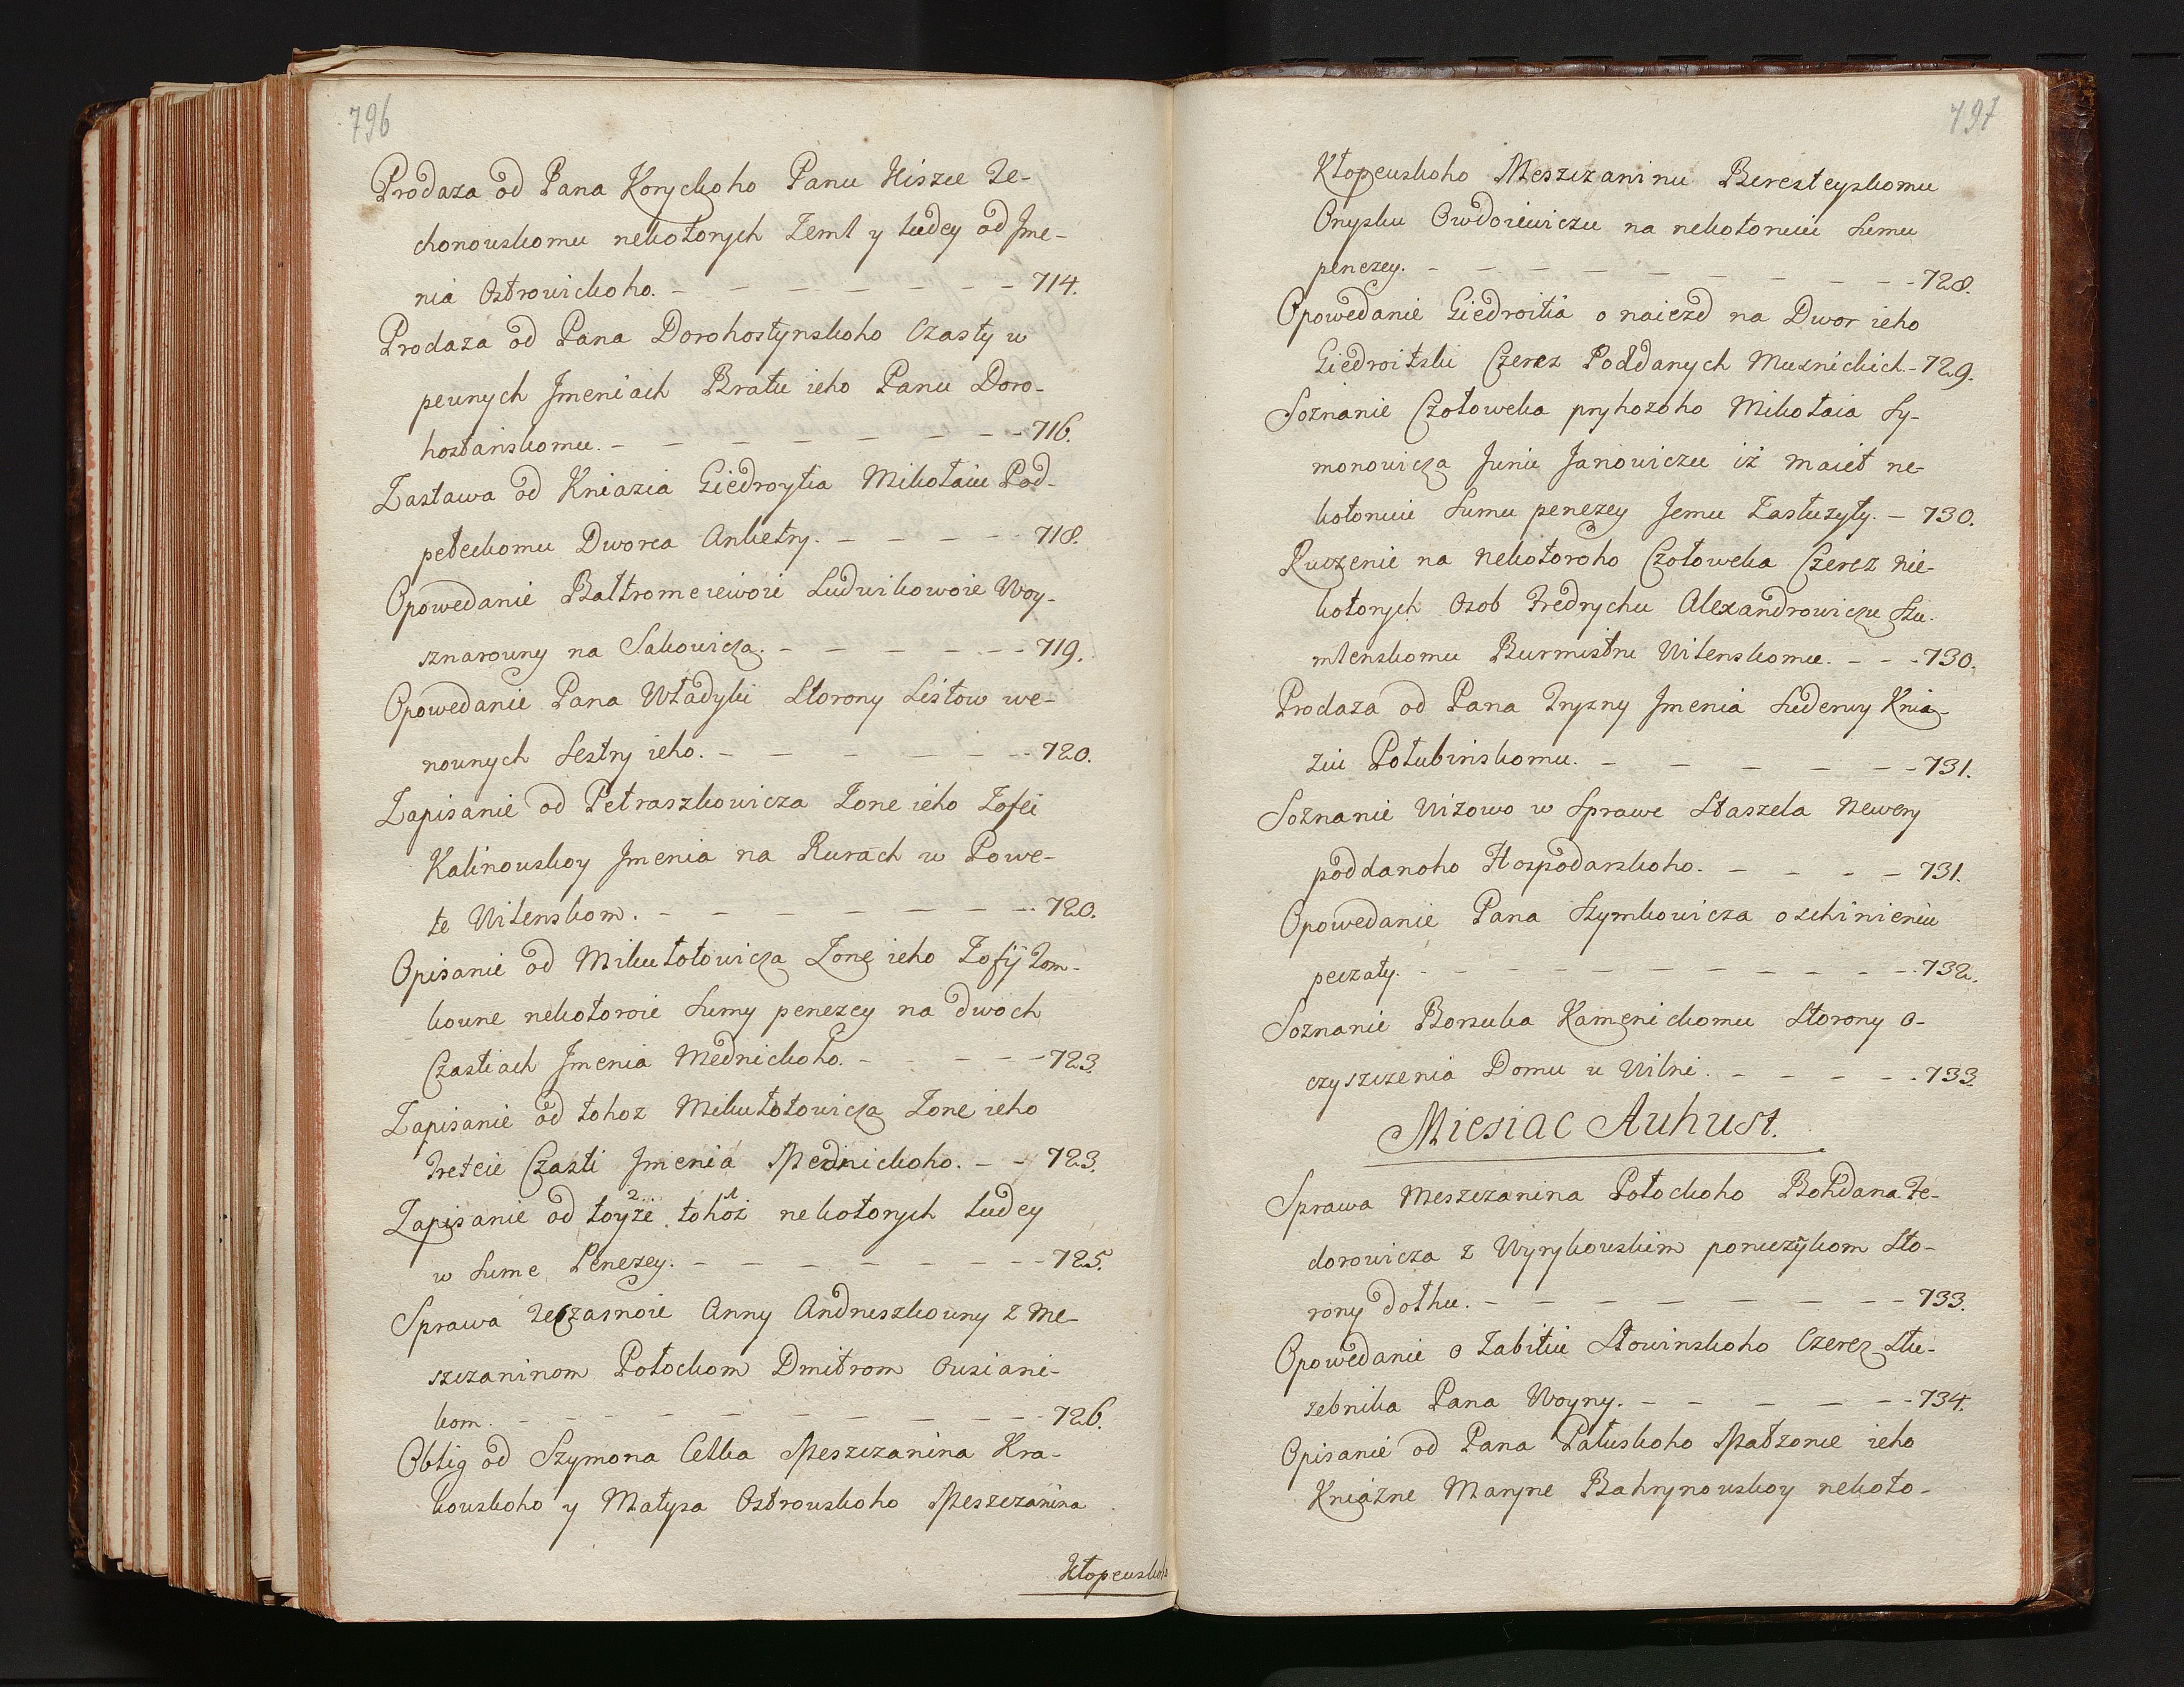 796
Prodaza od Pana Koryckoho Panu Kiszce Ze-
chonouskomu nekotorych Zeml y ludey od Jme-
nia Ostrowickoho. - - - - - - - 714.
Prodaza od Pana Dorohostynskoho Czasty w
peunych Jmeniach Bratu ieho Panu Doro-
hostańskomu. - - - - - - - - 716.
Zastawa od Kniazia Giedroytia Mikołaiu Pod-
petеckomu Dworca Ankietry. - - - - - 718.
Opowedanie Baltromeiewoie Ludwikowoie Woy-
sznarouny na Sakowicza. - - - - - - 719.
Opowedanie Pana Władyki Storony Listow we-
nounych Sestry ieho. - - - - - - - 720.
Zapisanie od Petraszkowicza Zone ieho Zofei
Kalinouskoy Jmenia na Rurach w Powe-
te Wilenskom. - - - - - - - - 720.
Opisanie od Mikutotowicza Zone ieho Zofij Tom-
koune nekotoroie Sumy penezey na dwoch
Czastiach Jmenia Mednickoho. - - - - - 723.
Zapisanie od tohoz Mikutotowicza Zone ieho
Treteie Czasti Jmenia Mednickoho. - - 723.
Zapisanie od toyże 2 tohoż 1 nekotorych ludey
w Sume Penezey. - - - - - - - - 725.
Sprawa Zeczasnoie Anny Andruszkouny z Me-
szczaninom Połockom Dmitrom Ousiani-
kom. - - - - - - - - - - - 726.
Oblig od Szymona Celka Meszczanina Kra-
kouskoho y Matysa Ostrouskoho Meszczanina
Kłopeuskoho
797
Kłopeuskoho Meszczaninu Beresteyskomu
Onysku Owdoiewiczu na nekotoruiu Sumu
penezey. - - - - - - - - - - 728.
Opowedanie Giedroitia o naiezd na Dwor ieho
Giedroitski Czerez Poddanych Musnickich. - 729.
Soznanie Czołoweka pryhozoho Mikołaia Sy-
monowicza Juniu Janowiczu iż maiet ne-
kotoruiu Sumu penezey Jemu Zasłuzyty. - 730.
Ruczenie na nekotoroho Czołoweka Czerez nie-
kotorych Osob Fredrychu Alexandrowiczu Szu-
mlenskomu Burmistru Wilenskomu. - - - 730.
Prodaza od Pana Tryzny Jmenia Suderwy Knia-
ziu Połubińskomu. - - - - - - - 731.
Soznanie Wizowo w Sprawe Staszela Newery
poddanoho Hospodarskoho. - - - - - 731.
Opowedanie Pana Szymkowicza o zhinieniu
peczaty. - - - - - - - - - - 732.
Soznanie Borsuka Kamenickomu Storony o-
czyszczenia Domu u Wilni. - - - - - 733.
Miesiac Auhust.
Sprawa Meszczanina Połockoho Bohdana Fe-
dorowicza z Wyrykouskim poruczykom Sto-
rony dołhu. - - - - - - - - - 733.
Opowedanie o Zabitiu Słowinskoho Czerez Słu-
zebnika Pana Woyny. - - - - - - 734.
Opisanie od Pana Pałuskoho Małzonce ieho
Kniażne Maryne Bahrynouskoy nekoto-